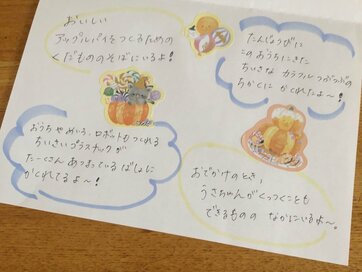 おいしい
アップルパイをつくるための
くだもののそばにいるよ!
たんじょうびに
このおうちにきた
ちいさな カラフルつぶつぶの
ちかくに かくれたよー!
おうちや めいろ、ロボットもつくれる
ちいさいプラスチックが
たーくさん あつまっているばしょに
かくれてるよ〜!
おでかけのとき、
うさちゃんがくっつくことも
できるものの なかにいるよ〜。